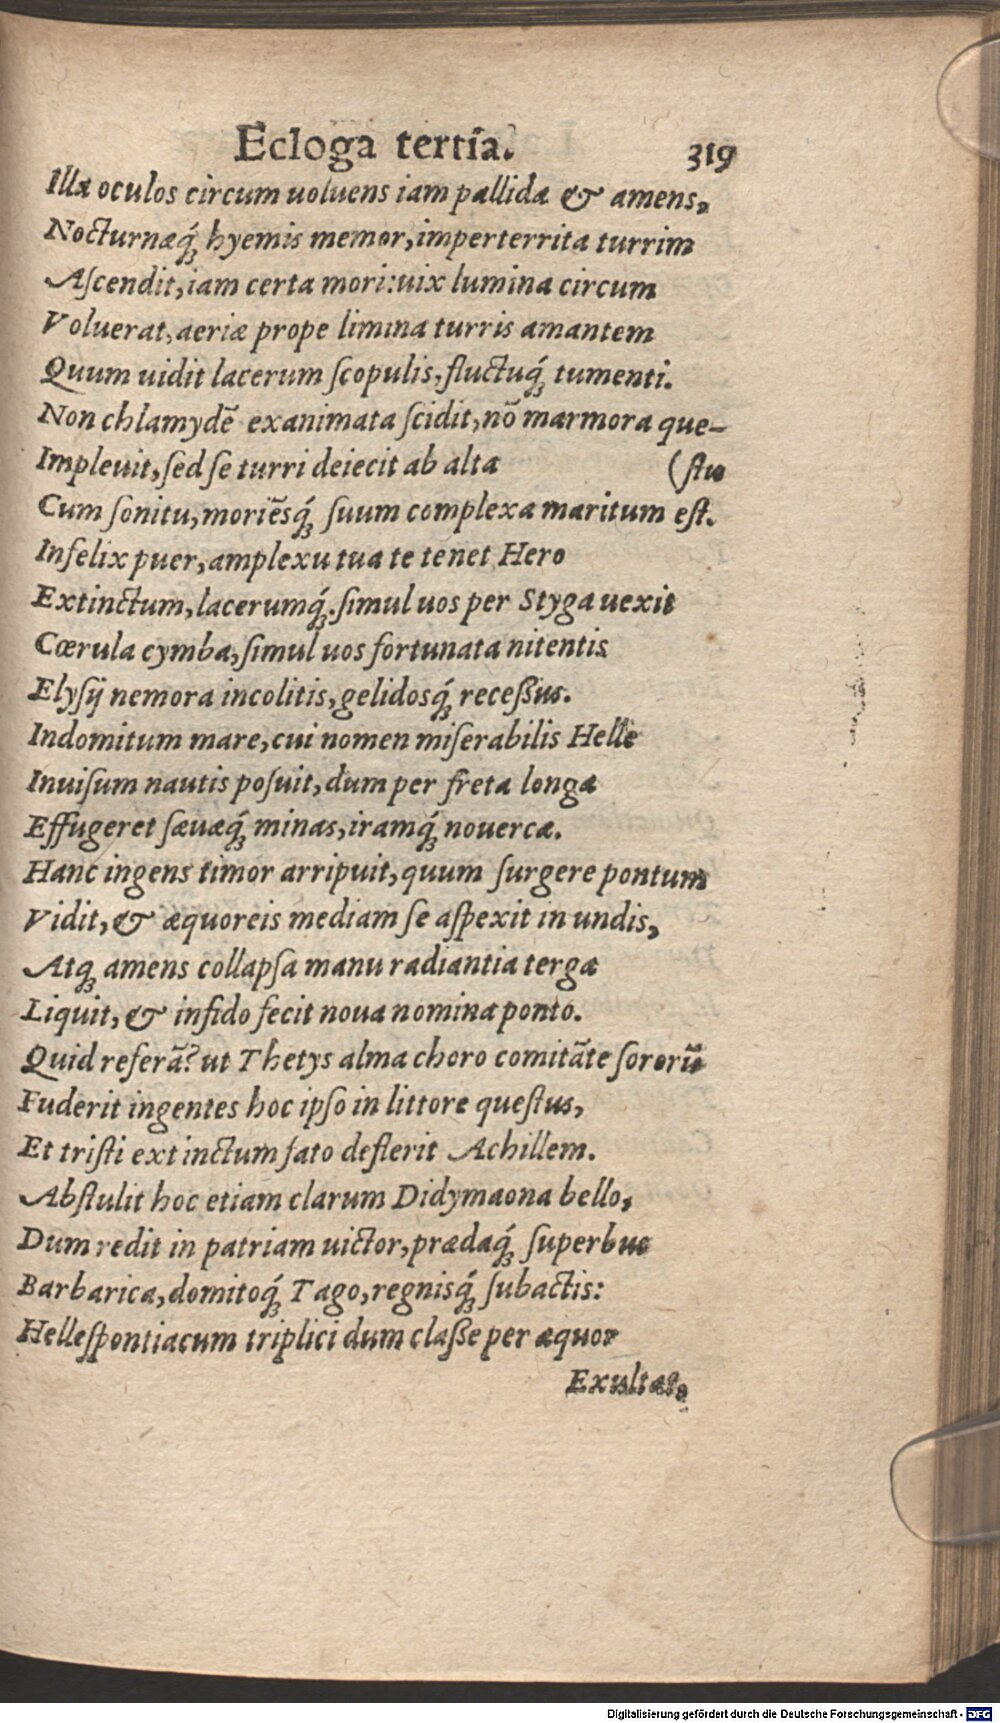 Ecloga tertia. 319
Illa oculos circum uoluens iam pallida & amens,
Nocturnæq́ꝫ hyemis memor, imperterrita turrim
Aſcendit, iam certa mori: uix lumina circum
Voluerat, aeriæ prope limina turris amantem
Quum uidit lacerum ſcopulis, fluctuq́ꝫ tumenti.
Non chlamydē exanimata ſcidit, nō marmora que-
Impleuit, ſed ſe turri deiecit ab alta (ſtu
Cum ſonitu, moriēsq́ꝫ ſuum complexa maritum eſt.
Infelix puer, amplexu tua te tenet Hero
Extinctum, lacerumq́ꝫ. ſimul uos per Styga uexit
Cœrula cymba, ſimul uos fortunata nitentis
Elyſij nemora incolitis, gelidosq́ꝫ receßus.
Indomitum mare, cui nomen miſerabilis Helle
Inuiſum nautis poſuit, dum per freta longa
Effugeret ſæuæq́ꝫ minas, iramq́ꝫ nouercæ.
Hanc ingens timor arripuit, quum ſurgere pontum
Vidit, & æquoreis mediam ſe aſpexit in undis,
Atqꝫ amens collapſa manu radiantia terga
Liquit, & infido fecit noua nomina ponto.
Quid referā? ut Thetys alma choro comitāte ſororū
Fuderit ingentes hoc ipſo in littore queſtus,
Et triſti extinctum fato deflerit Achillem.
Abſtulit hoc etiam clarum Didymaona bello,
Dum redit in patriam uictor, prædaq́ꝫ ſuperbus
Barbarica, domitoq́ꝫ Tago, regnisq́ꝫ ſubactis:
Helleſpontiacum triplici dum claße per æquor
Exultat,
Digitalisierung gefördert durch die Deutsche Forschungsgemeinschaft - DFG